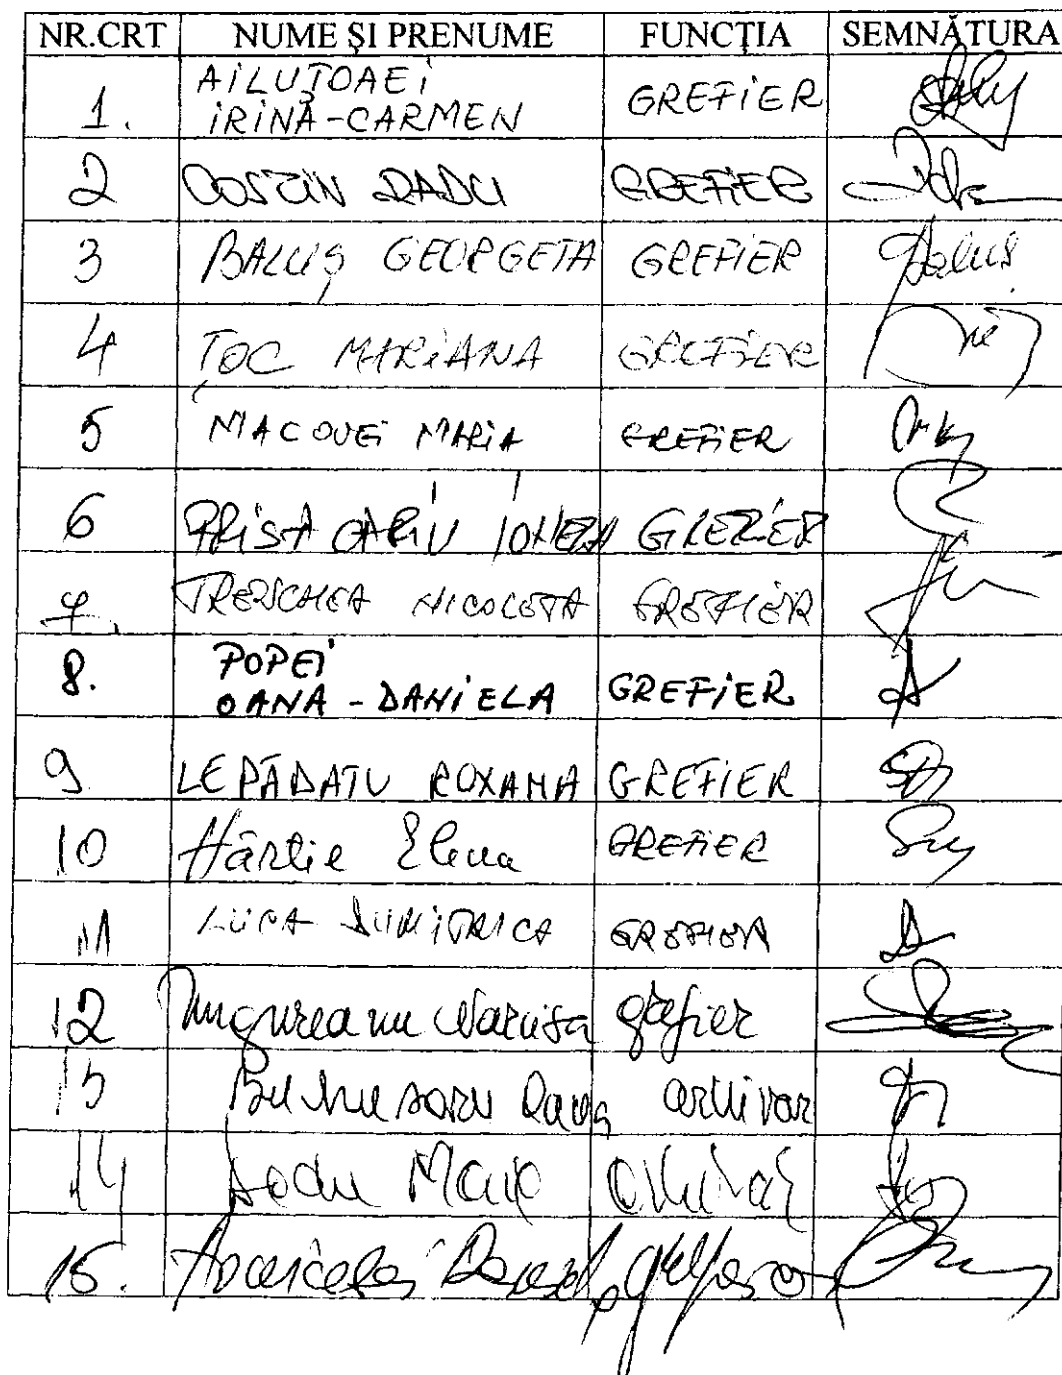 NR.CRT NUME ȘI PRENUME FUNCȚIA SEMNĂTURA
AILUȚOAEI
1. IRINA-CARMEN GREFIER
2 COSTIN RADU GREFIER
3 BALUȘ GEORGETA GREFIER
4 ȚOC MARIANA GREFIER
5 MACOVEI MARIA GREFIER
6 PRISACARIU IONELA GREFIER
7. NICOLETA GREFIER
POPEI
8. OANA - DANIELA GREFIER
9 LEPĂDATU ROXANA GREFIER
10 Hârtie Elena GREFIER
11 LUCA DUMITRICA GREFIER
12 Ungureanu Narcisa grefier
13 arhivar
14 arhivar
15.